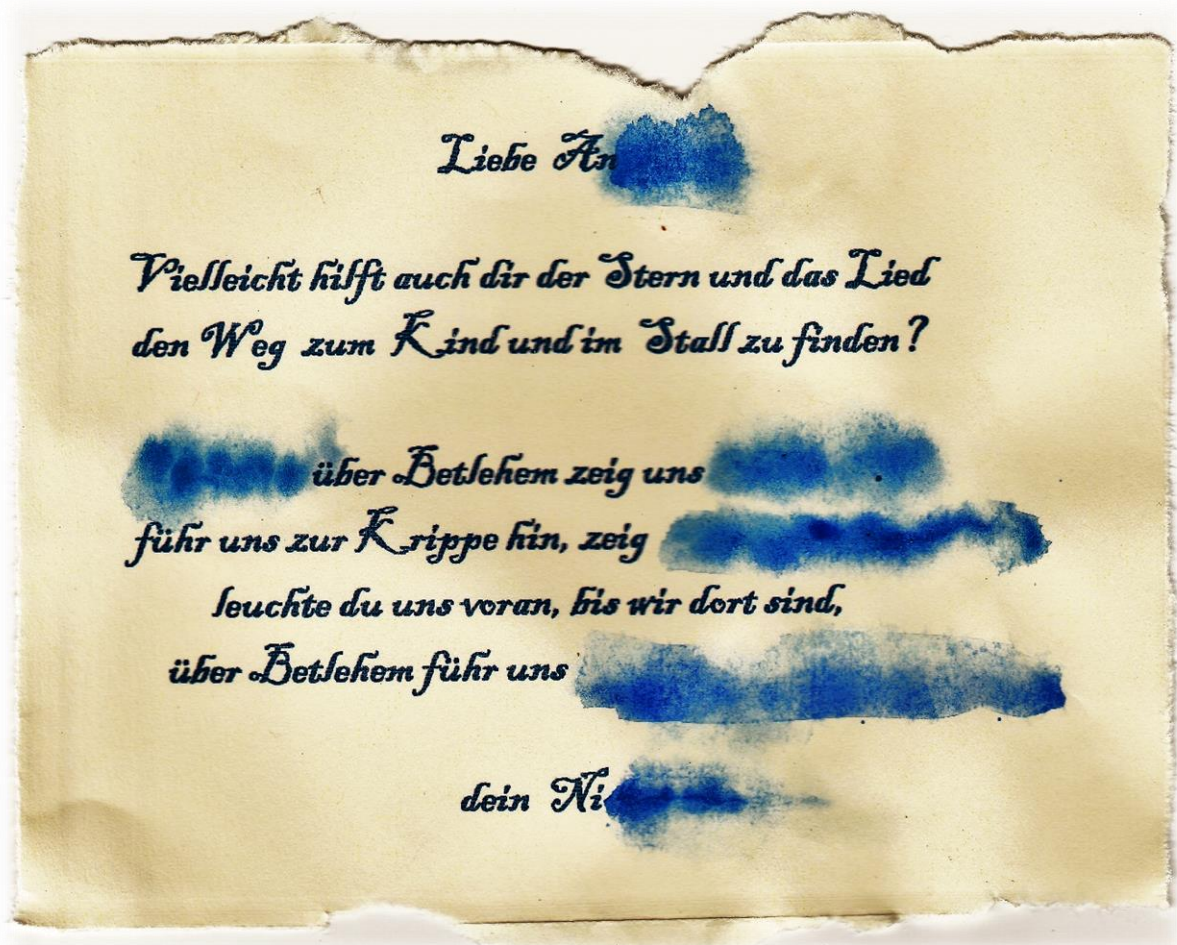 Liebe An
Vielleicht hilft auch dir der Stern und das Lied
den Weg zum Kind und im Stall zu finden?
über Betlehem zeig uns
führ uns zur Krippe hin, zeig
leuchte du uns voran, bis wir dort sind,
über Betlehem führ uns
dein Ni